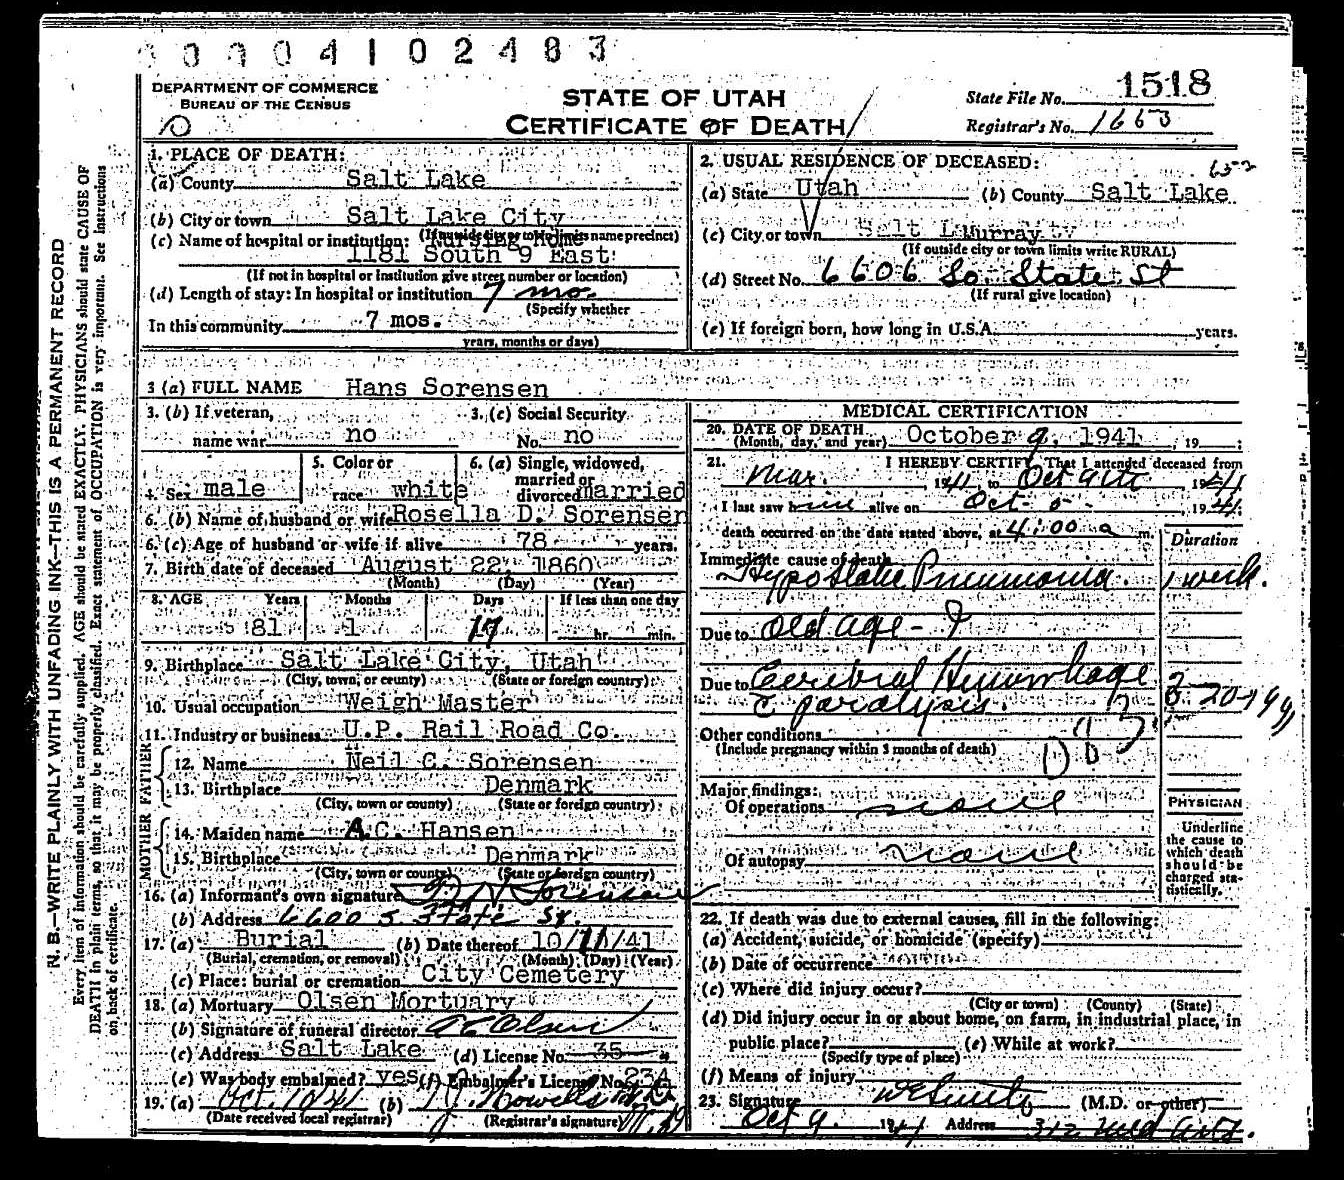 0 0 0 4 1 0 2 4 8 3
DEPARTMENT OF COMMERCE
BUREAU OF THE CENSUS
STATE OF UTAH
CERTIFICATE OF DEATH
State File No. 1518
Registrar's No. 1663
N. B.—WRITE PLAINLY WITH UNFADING INK—THIS IS A PERMANENT RECORD
Every item of information should be carefully supplied. AGE should be stated EXACTLY. PHYSICIANS should state CAUSE OF
DEATH in plain terms, so that it may be properly classified. Exact statement of OCCUPATION is very important. See instructions
on back of certificate.
1. PLACE OF DEATH:
(a) County Salt Lake
(b) City or town Salt Lake City
(If outside city or town limits name precinct)
(c) Name of hospital or institution: Nursing Home
1181 South 9 East
(If not in hospital or institution give street number or location)
(d) Length of stay: In hospital or institution 7 mo.
(Specify whether
In this community 7 mos.
years, months or days)
2. USUAL RESIDENCE OF DECEASED:
(a) State Utah (b) County Salt Lake
(c) City or town Murray
(If outside city or town limits write RURAL)
(d) Street No. 6606 So. State St
(If rural give location)
(e) If foreign born, how long in U.S.A. years.
3 (a) FULL NAME Hans Sorensen
3. (b) If veteran,
name war no
3. (c) Social Security
No. no
4. Sex male
5. Color or
race white
6. (a) Single, widowed,
married or
divorced married
6. (b) Name of husband or wife Rosella D. Sorensen
6. (c) Age of husband or wife if alive 78 years.
7. Birth date of deceased August 22 1860
(Month) (Day) (Year)
8. AGE Years Months Days If less than one day
81 1 17 hr. min.
9. Birthplace Salt Lake City, Utah
(City, town, or county) (State or foreign country)
10. Usual occupation Weigh Master
11. Industry or business U.P. Rail Road Co.
FATHER
12. Name Neil C. Sorensen
13. Birthplace Denmark
(City, town or county) (State or foreign country)
MOTHER
14. Maiden name A.C. Hansen
15. Birthplace Denmark
(City, town or county) (State or foreign country)
16. (a) Informant's own signature Sorensen
(b) Address 6600 S State St.
17. (a) Burial (b) Date thereof 10/11/41
(Burial, cremation, or removal) (Month) (Day) (Year)
(c) Place: burial or cremation City Cemetery
18. (a) Mortuary Olsen Mortuary
(b) Signature of funeral director Olsen
(c) Address Salt Lake (d) License No. 35
(e) Was body embalmed? yes (f) Embalmer's License No. 234
19. (a) Oct 10 41 (b)
(Date received local registrar) (Registrar's signature)
MEDICAL CERTIFICATION
20. DATE OF DEATH October 9, 1941, 19
(Month, day, and year)
21. I HEREBY CERTIFY, That I attended deceased from
Mar. 1941 to Oct 9th 1941
I last saw him alive on Oct 5 1941
death occurred on the date stated above, at 4:00 a m.
Duration
Immediate cause of death
Hypostatic Pneumonia. 1 week.
Due to Old age - ?
Due to Cerebral Hemorrhage
c paralysis.
Other conditions
(Include pregnancy within 3 months of death)
Major findings:
Of operations none
Of autopsy none
PHYSICIAN
Underline
the cause to
which death
should be
charged sta-
tistically.
22. If death was due to external causes, fill in the following:
(a) Accident, suicide, or homicide (specify)
(b) Date of occurrence
(c) Where did injury occur?
(City or town) (County) (State)
(d) Did injury occur in or about home, on farm, in industrial place, in
public place? (e) While at work?
(Specify type of place)
(f) Means of injury
23. Signature (M.D. or other)
Oct 9. 1941 Address 312 Med Arts.